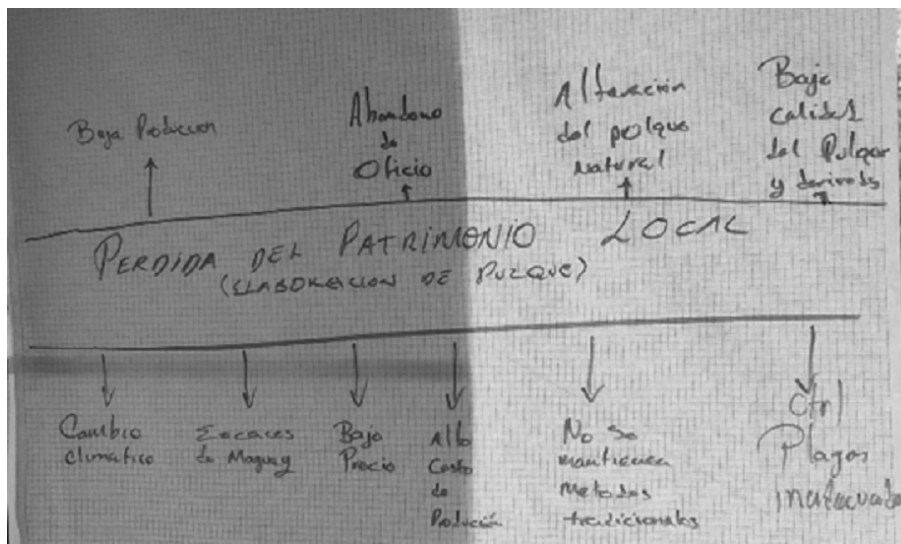 Baja Producion
Abandono
de
Oficio
Alteración
del pulque
natural
Baja
calidad
del Pulque
y derivados
PERDIDA DEL PATRIMONIO LOCAL
(ELABORACION DE PULQUE)
Cambio
climatico
Escases
de Maguey
Bajo
Precio
Alto
Costo
de
Producción
No se
mantienen
Metodos
tradicionales
Ctrl
Plagas
inadecuado